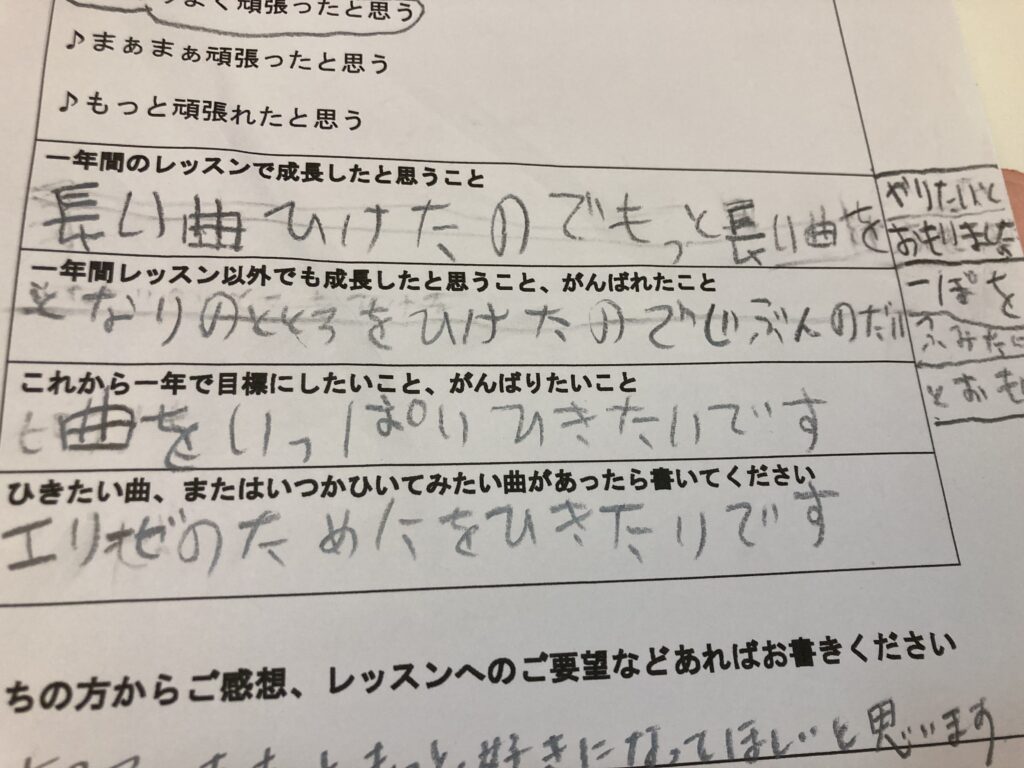 よく頑張ったと思う
♪まぁまぁ頑張ったと思う
♪もっと頑張れたと思う
一年間のレッスンで成長したと思うこと
長い曲ひけたのでもっと長い曲を
やりたいと
おもいました
一年間レッスン以外でも成長したと思うこと、がんばれたこと
となりのととろをひけたのでじぶんのだい
一ぽを
ふみだに
とおも
これから一年で目標にしたいこと、がんばりたいこと
曲をいっぱいひきたいです
ひきたい曲、またはいつかひいてみたい曲があったら書いてください
エリゼのためにをひきたいです
ちの方からご感想、レッスンへのご要望などあればお書きください
もっと好きになってほしいと思います